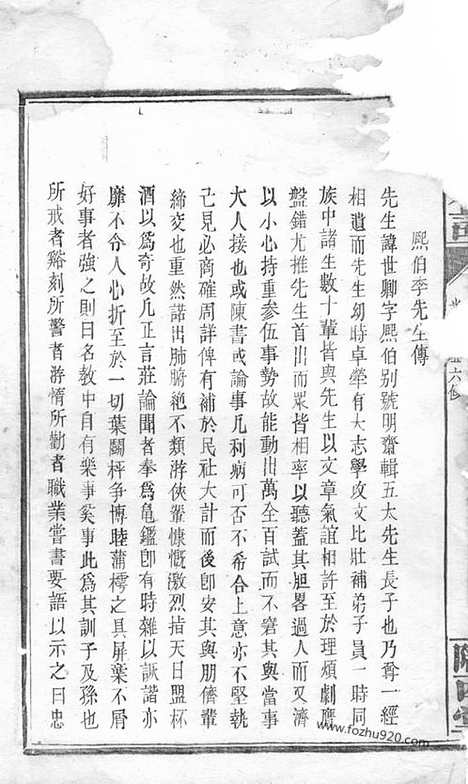 熙伯李先生傳
先生諱世卿字熙伯别號明齋輯五太先生長子也尊一經
相遺而先生幼時卓犖有大志學攻文比壯補弟子員一時同
族中諸生數十輩皆與先生以文章氣誼相許至於理煩劇應
盤錯尤推先生首出而眾皆相率以聽蓋其胆畧過人而又濟
以小心持重參伍事勢故能動出萬全百試而不窘其與當事
大人接也或陳書或論事凡利病可否不希合上意亦不堅執
己見必商確周詳俾有補於民社大計而後卽安其與朋儕輩
締交也重然諾出肺腑絶不類游俠輩慷慨激烈指天日盟杯
酒以爲奇故凡正言莊論聞者奉爲龜鑑卽有時雜以詼諧亦
靡不令人心折至於一切葉鬬枰争博踥蒲樗之具屏棄不屑
好事者強之則曰名教中自有樂事奚事此爲其訓子及孫也
所戒者谿刻所警者游惰所勸者職業嘗書要語以示之曰忠
六修
www.fozhu920.com